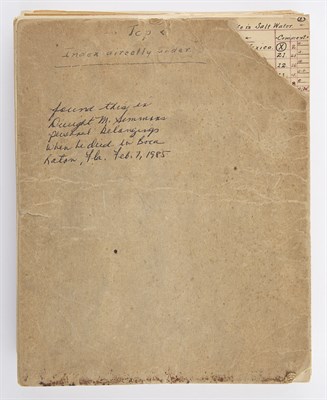 Top &
Index directly under
found this in
Dwight M. Simmons
personal belongings
when he died in Boca
Raton, Fla. Feb. 7, 1985
in Salt Water.